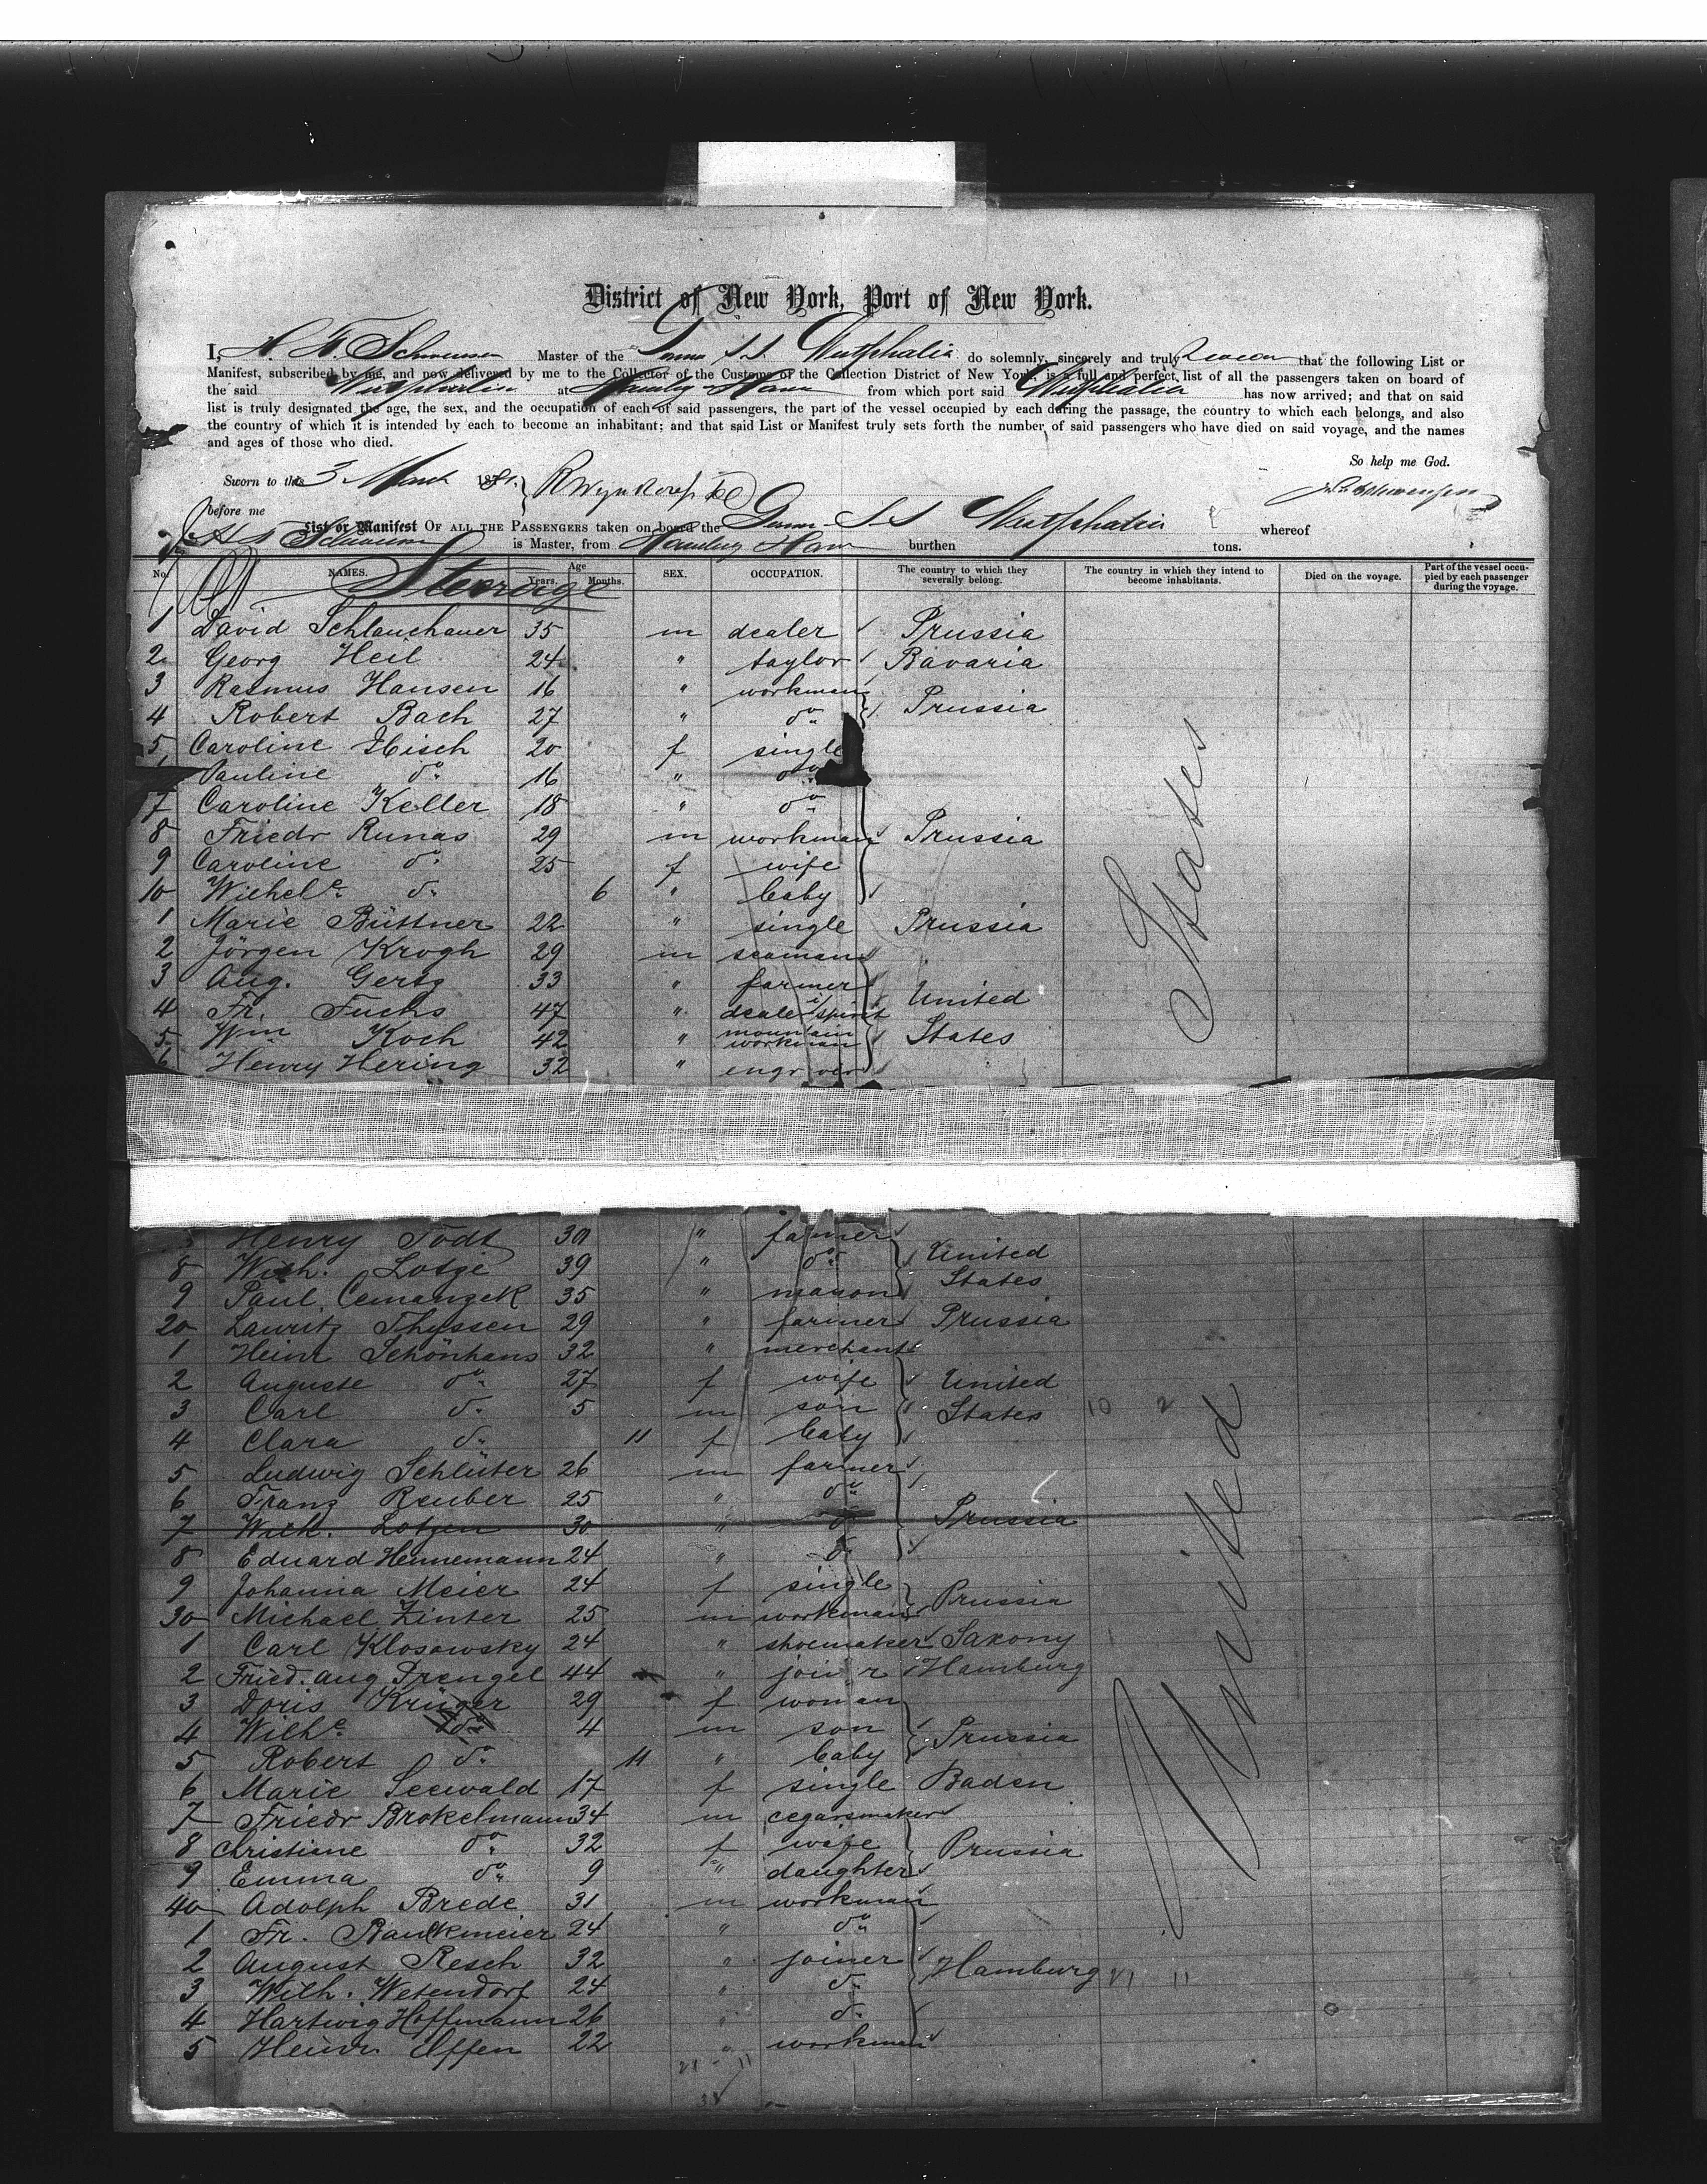 District of New York, Port of New York.
I, H. F. Schwensen Master of the Germ S.S. Westphalia do solemnly, sincerely and truly swear that the following List or
Manifest, subscribed by me, and now delivered by me to the Collector of the Customs of the Collection District of New York, is a full and perfect list of all the passengers taken on board of
the said Westphalia at Hamburg & Havre from which port said Westphalia has now arrived; and that on said
list is truly designated the age, the sex, and the occupation of each of said passengers, the part of the vessel occupied by each during the passage, the country to which each belongs, and also
the country of which it is intended by each to become an inhabitant; and that said List or Manifest truly sets forth the number of said passengers who have died on said voyage, and the names
and ages of those who died.
So help me God.
Sworn to this 3 March 1881.
before me
List or Manifest OF ALL THE PASSENGERS taken on board the Germ S S Westphalia whereof
H F Schwensen is Master, from Hamburg Havre burthen tons.
No. NAMES. Age Years. Months. SEX. OCCUPATION. The country to which they severally belong. The country in which they intend to become inhabitants. Died on the voyage. Part of the vessel occupied by each passenger during the voyage.
Steerage
1 David Schlauchauer 35 m dealer Prussia
2 Georg Heil 24 " taylor Bavaria
3 Rasmus Hansen 16 " workman
4 Robert Bach 27 " do Prussia
5 Caroline Hisch 20 f single
Pauline do 16 " do
7 Caroline Keller 18 " do
8 Friedr Runas 29 m workman Prussia
9 Caroline do 25 f wife
10 Wilhele do 6 " baby
1 Marie Büttner 22 " single Prussia
2 Jörgen Krogh 29 m seaman
3 Aug. Gertz 33 " farmer
4 Fr. Fuchs 47 " dealer i/spirit United
5 Wm Koch 42 " mountain workman States
6 Henry Hering 32 " engraver
Henry Todt 30 " farmer
8 Wilh. Lotze 39 " do United
9 Paul Cemanzek 35 " mason States
20 Lauritz Thyssen 29 " farmer Prussia
1 Heinr Schönhans 32 " merchant
2 Auguste do 27 f wife United
3 Carl do 5 m son States 10 2
4 Clara do 11 f baby
5 Ludwig Schlüter 26 m farmer
6 Franz Reuber 25 " do
7 Wilh. Lotzen 30 " do Prussia
8 Eduard Hennemann 24 " do
9 Johanna Meier 24 f single
30 Michael Zinter 25 m workman Prussia
1 Carl Klosowsky 24 " shoemaker Saxony
2 Fried. Aug Prengel 44 " joiner Hamburg
3 Doris Krüger 29 f woman
4 Wilhe do 4 m son Prussia
5 Robert do 11 " baby
6 Marie Seewald 17 f single Baden
7 Friedr Brokelmann 34 m cegarsmaker
8 Christiane do 32 f wife Prussia
9 Emma do 9 " daughter
40 Adolph Brede 31 m workman
1 Fr. Baukmeier 24 " do
2 August Resch 32 " joiner
3 Wilh. Wetendorf 24 " do Hamburg
4 Hartwig Hoffmann 26 " do
5 Heinr. Offen 22 " workman
United States